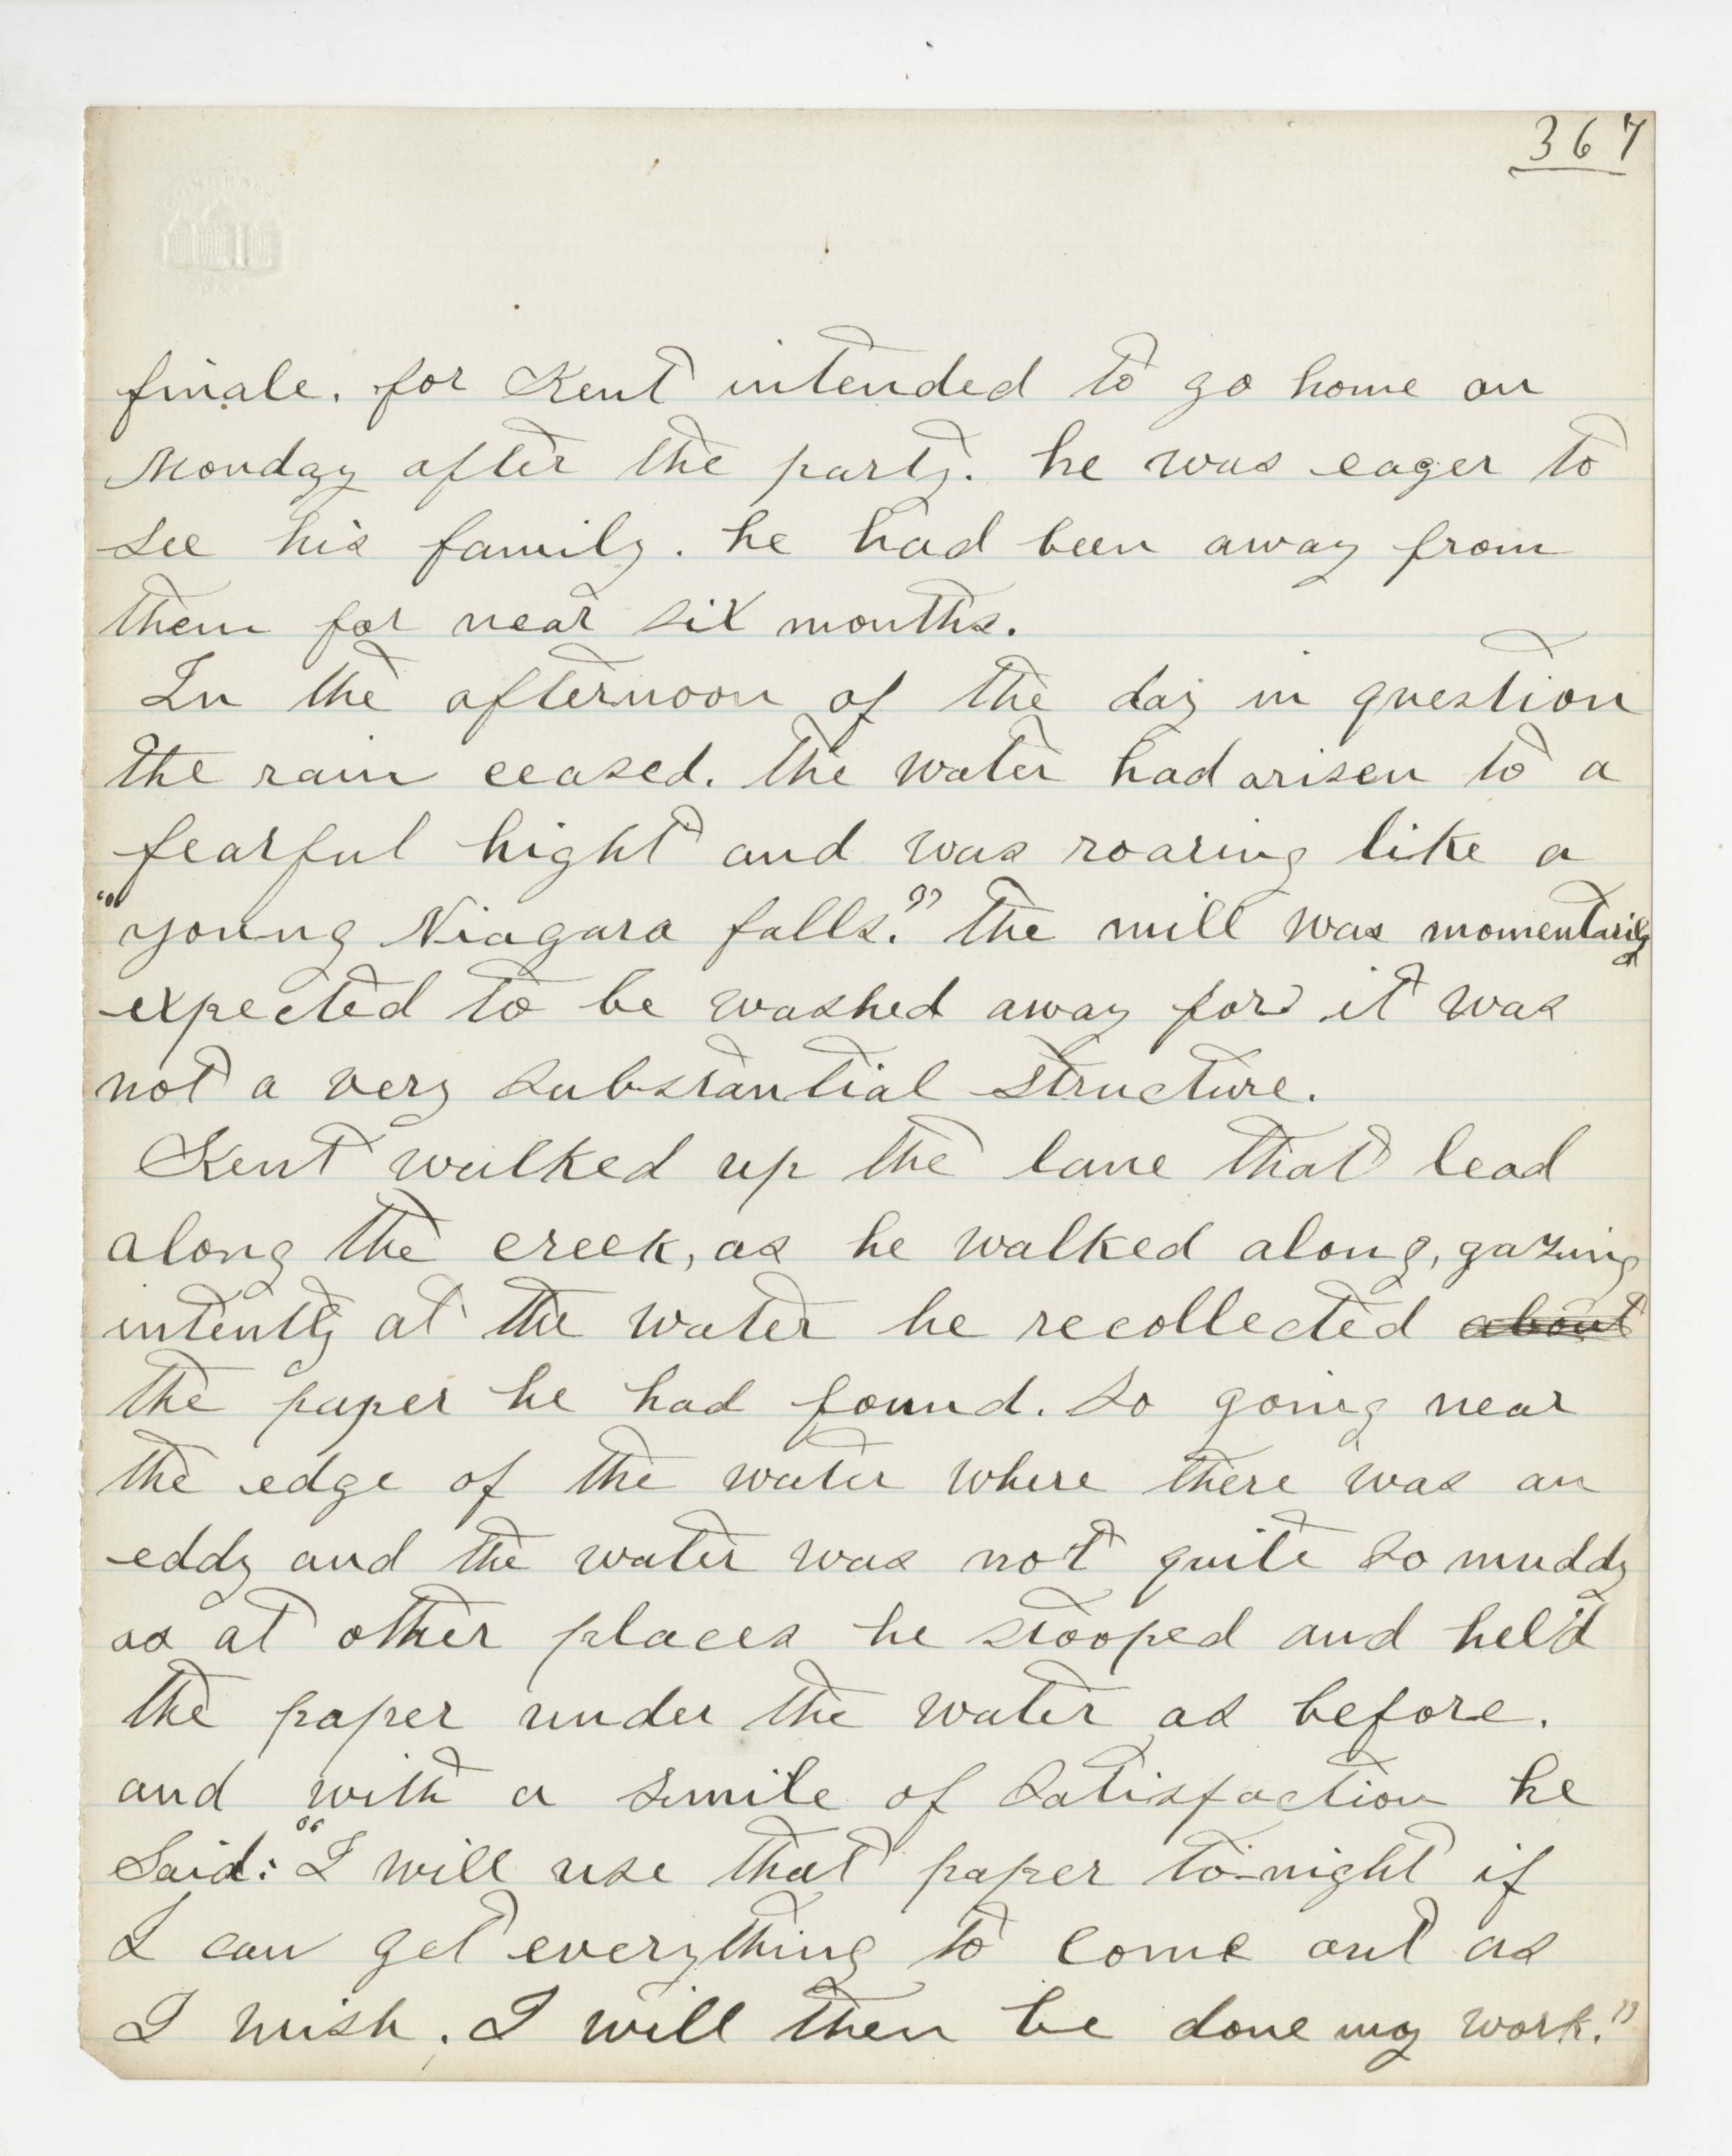 367
finale. for Kent intended to go home on
Monday after the party. he was eager to
see his family. he had been away from
them for near six months.
In the afternoon of the day in question
the rain ceased. The water had arisen to a
fearful hight and was roaring like a
"young Niagara falls." The mill was momentarily
expected to be washed away for it was
not a very substantial structure.
Kent walked up the lane that lead
along the creek, as he walked along, gazing
intently at the water he recollected about
the paper he had found. So going near
the edge of the water where there was an
eddy and the water was not quite so muddy
as at other places he stooped and held
the paper under the water as before.
and with a smile of satisfaction he
Said: "I will use that paper to-night if
I can get everything to come out as
I wish. I will then be done my work."